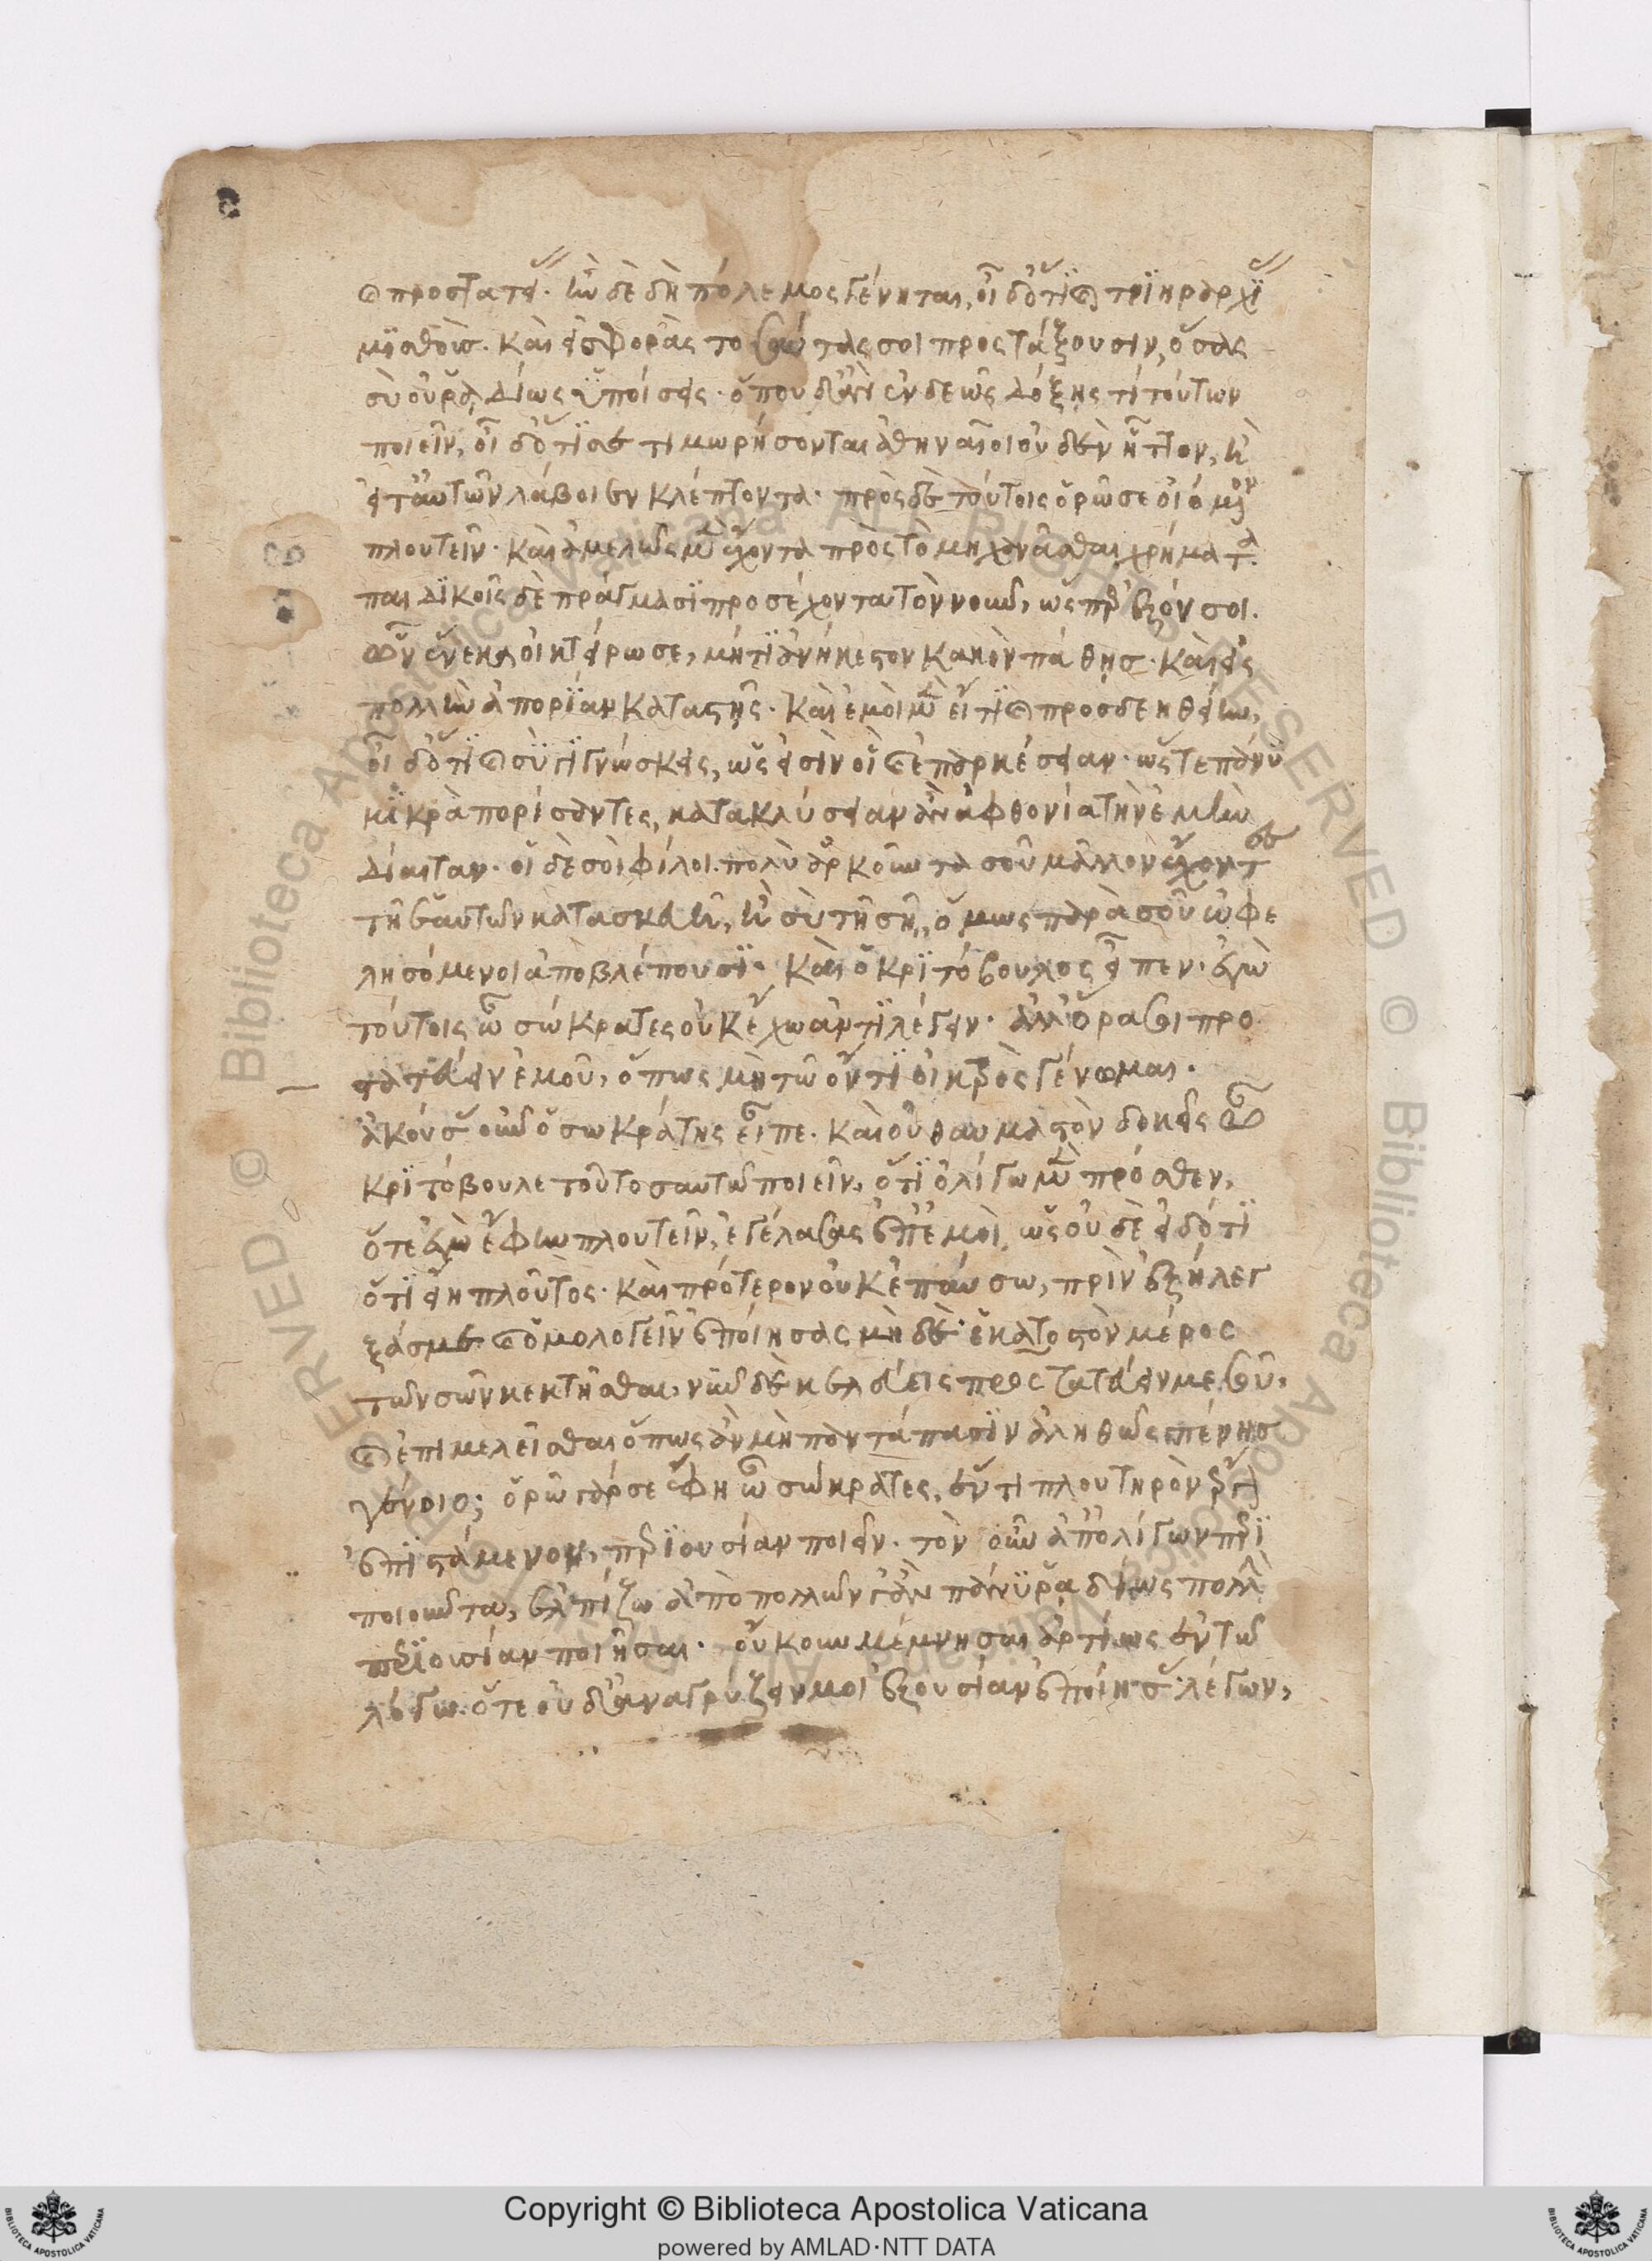 καὶ προστατείας· ἢν δὲ δὴ πόλεμος γένηται, οἶδ' ὅτι καὶ τριηραρχίας
μισθοὺς· καὶ εἰσφορὰς τοσαύτας σοι προστάξουσιν, ὅσας
σὺ οὐ ῥᾳδίως ὑποίσεις· ὅπου δ' ἂν ἐνδεῶς δόξῃς τί τούτων
ποιεῖν, οἶδ' ὅτι σε τιμωρήσονται ἀθηναῖοι οὐδὲν ἧττον, ἢ
εἰ τὰ αὑτῶν λάβοιεν κλέπτοντα· πρὸς δὲ τούτοις ὁρῶ σε οἰόμενον
πλουτεῖν· καὶ ἀμελῶς μὲν ἔχοντα πρὸς τὸ μηχανᾶσθαι χρήματα·
παιδικοῖς δὲ πράγμασι προσέχοντα τὸν νοῦν, ὡς περ ἐξόν σοι.
ὧν ἕνεκα οἰκτείρω σε, μή τι ἀνήκεστον κακὸν πάθῃς· καὶ εἰς
πολλὴν ἀπορίαν καταστῇς· καὶ ἐμοὶ μὲν εἴ τι καὶ προσδεηθείην,
οἶδ' ὅτι καὶ σὺ γιγνώσκεις, ὡς εἰσὶν οἳ καὶ ἐπαρκέσειαν· ὥστε πάνυ
μικρὰ πορίσαντες, κατακλύσειαν ἂν ἀφθονίᾳ τὴν ἐμὴν
δίαιταν· οἱ δὲ σοὶ φίλοι πολὺ ἀρκοῦντα σοῦ μᾶλλον ἔχοντες
τῇ ἑαυτῶν κατασκευῇ, ἢ σὺ τῇ σῇ, ὅμως παρὰ σοῦ ὠφε
λησόμενοι ἀποβλέπουσι· καὶ ὁ κριτόβουλος εἶπεν· ἐγὼ
τούτοις ὦ σώκρατες οὐκ ἔχω ἀντιλέγειν· ἀλλ' ὥρα σοι προ
στατεύειν ἐμοῦ, ὅπως μὴ τῷ ὄντι οἰκτρὸς γένωμαι.
ἀκούσας οὖν ὁ σωκράτης εἶπε· καὶ οὐ θαυμαστὸν δοκεῖς ὦ
κριτόβουλε τοῦτο σαυτῷ ποιεῖν, ὅτι ὀλίγῳ μὲν πρόσθεν,
ὅτε ἐγὼ ἔφην πλουτεῖν, ἐγέλασας ἐπ' ἐμοὶ, ὡς οὐδὲ εἰδότι
ὅτι εἴη πλοῦτος· καὶ πρότερον οὐκ ἐπαύσω, πρὶν ἐξήλεγ
ξάς με καὶ ὁμολογεῖν ἐποίησας μὴ δὲ ἑκατοστὸν μέρος
τῶν σῶν κεκτῆσθαι, νῦν δὲ κελεύεις προστατεύειν με σοῦ,
καὶ ἐπιμελεῖσθαι ὅπως ἂν μὴ παντάπασιν ἀληθῶς πένης
γένοιο; ὁρῶ γάρ σε ἔφη ὦ σώκρατες, ἕν τι πλουτηρὸν ἔργον
ἐπιστάμενον, περιουσίαν ποιεῖν· τὸν οὖν ἀπ' ὀλίγων περι
ποιοῦντα, ἐλπίζω ἀπὸ πολλῶν γ' ἂν πάνυ ῥᾳδίως πολλὴν
περιουσίαν ποιῆσαι· οὔκουν μέμνησαι ἀρτίως ἐν τῷ
λόγῳ· ὅτε οὐδ' ἀναγρύζειν μοι ἐξουσίαν ἐποίησας λέγων,
Copyright © Biblioteca Apostolica Vaticana
powered by AMLAD·NTT DATA